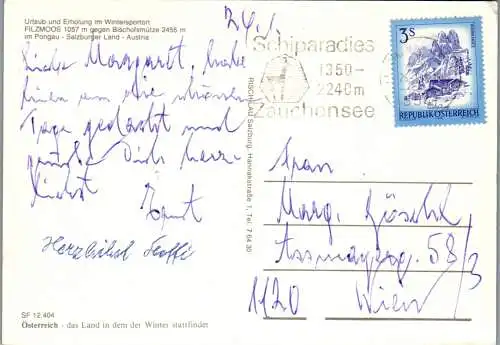 Urlaub und Erholung im Wintersportort
FILZMOOS 1057 m gegen Bischofsmütze 2455 m
im Pongau - Salzburger Land - Austria
24./1.
Liebe Margaret, habe
hier an die schönen
Tage gedacht und
grüße Dich herz-
lichst
Herzlichst Steffi
SF 12.404
Österreich - das Land in dem der Winter stattfindet
RISCHLAU Salzburg, Hannakstraße 1, Tel. 7 64 30
Schiparadies
1350-
2240m
Zauchensee
3S
REPUBLIK ÖSTERREICH
Frau
Marg.
58/3
1120 Wien